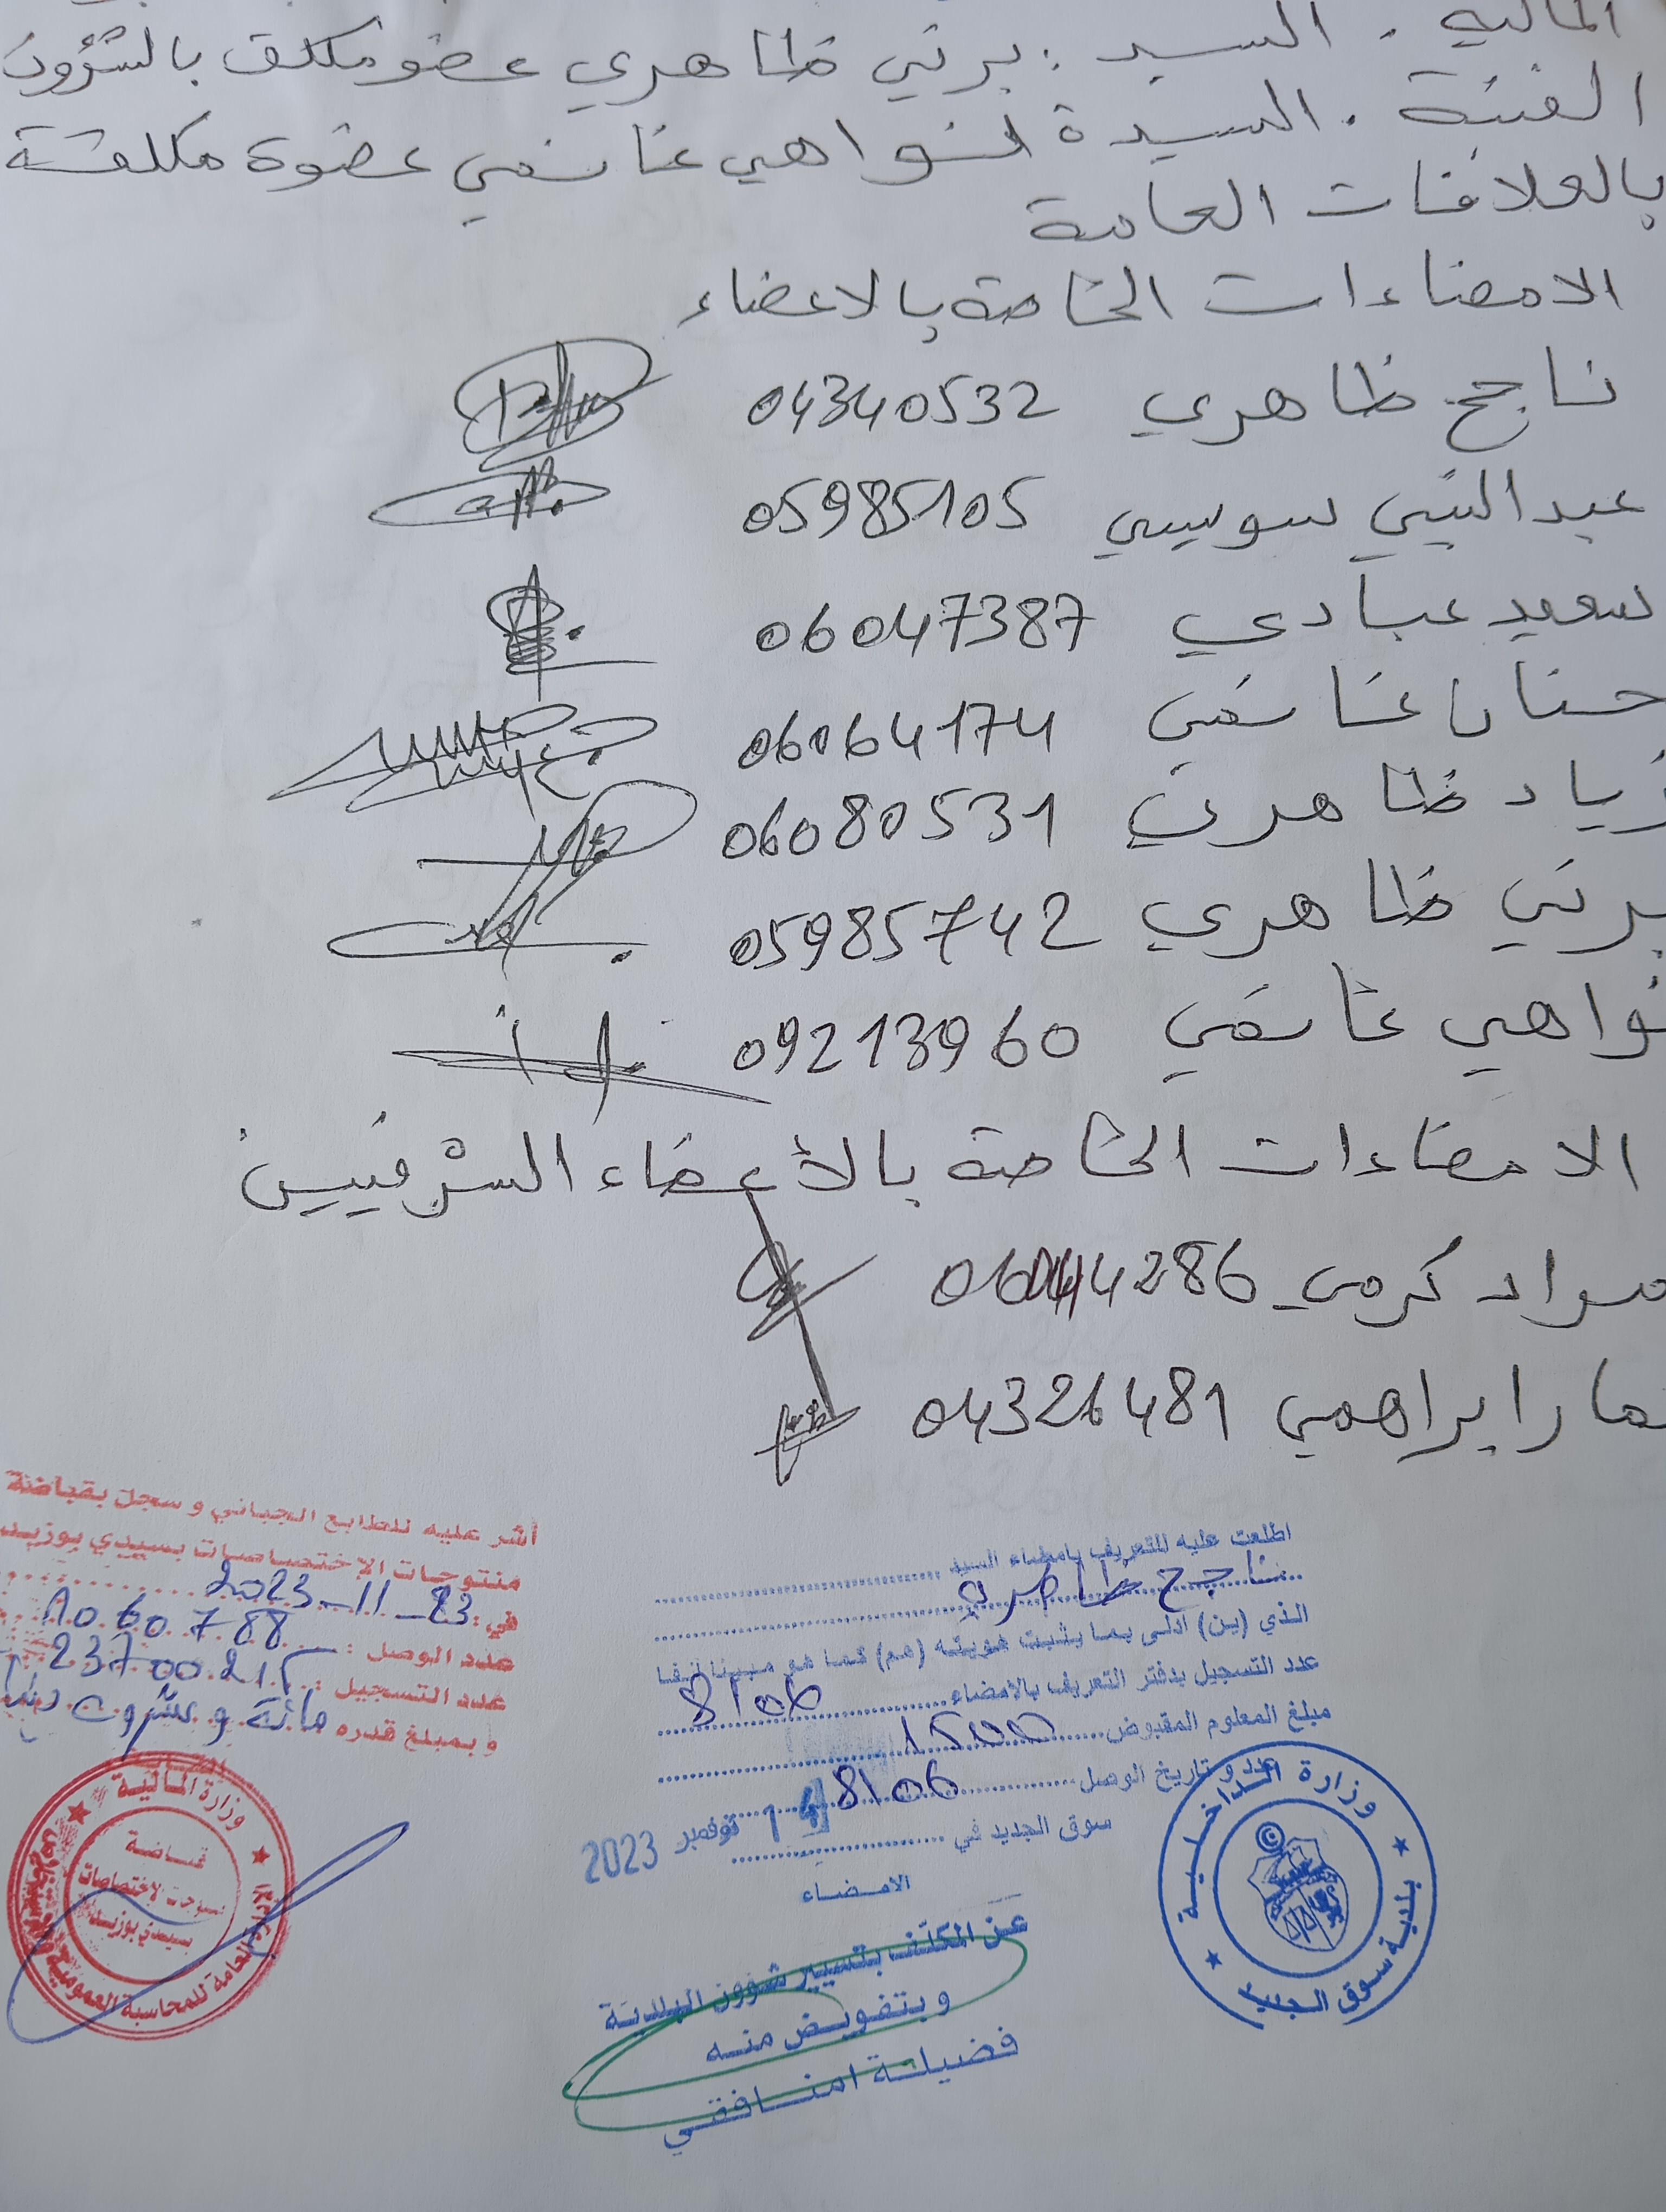 المالية . السيد : برني ظاهري عضو مكلف بالشؤون
الفنية . السيدة نواهي غانمي عضوة مكلفة
بالعلاقات العامة
الامضاءات الخاصة بالاعضاء
ناجح ظاهري 04340532
عبد النبي سويسي 05985105
سعيد عبادي 06047387
حنان غانمي 06064174
زياد ظاهري 06080531
برني ظاهري 05985742
نواهي غانمي 09213960
الامضاءات الخاصة بالأعضاء الشرفيين
مراد كرمي 06044286
عمار ابراهمي 04326481
أشر عليه للطابع الجبائي و سجل بقباضة
منتوجات الإختصاصات بسيدي بوزيد
في : 23-11-2023
عدد الوصل : 10607 88
عدد التسجيل : 23700215
و بمبلغ قدره مائة و عشرون
وزارة المالية
قباضة
منتوجات الإختصاصات
بسيدي بوزيد
الإدارة العامة للمحاسبة العمومية
اطلعت عليه للتعريف بامضاء السيد
ناجح ظاهري
الذي (ين) ادلى بما يثبت هويته (هم) كما هو مبين انفا
عدد التسجيل بدفتر التعريف بالامضاء 8106
مبلغ المعلوم المقبوض 1500
عدد و تاريخ الوصل 8106
سوق الجديد في 14 نوفمبر 2023
الامضاء
عن المكلف بتسيير شؤون البلدية
و بتفويض منه
فضيلة امنافقي
وزارة الداخلية
بلدية سوق الجديد